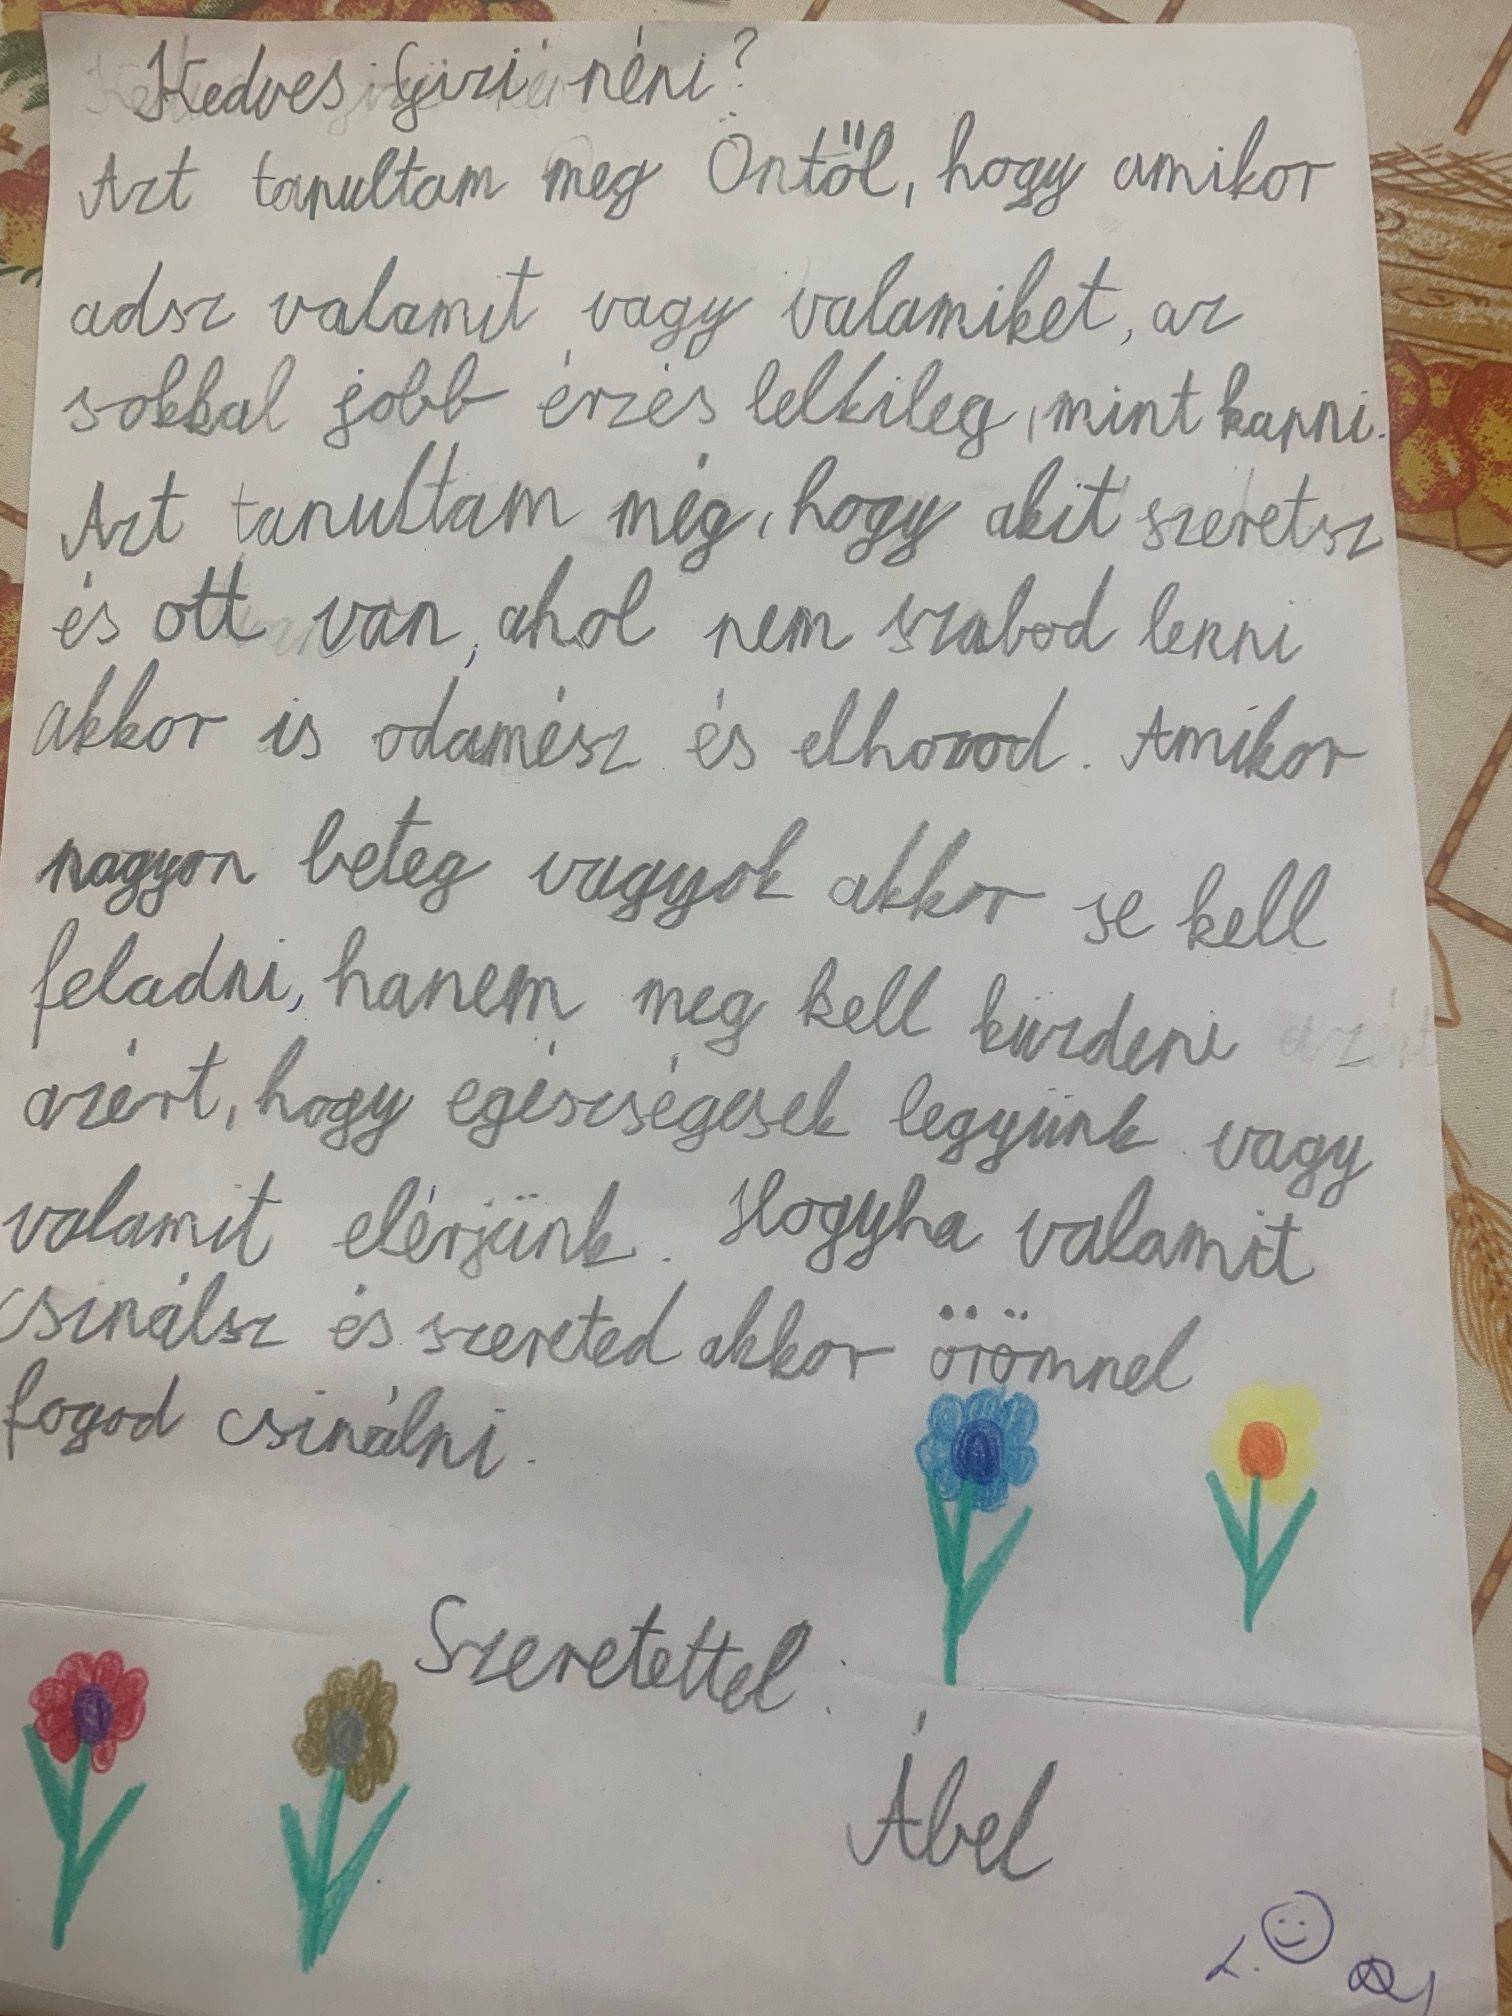 Kedves Gizi néni?
Azt tanultam meg Öntöl, hogy amikor
adsz valamit vagy valamiket, az
sokkal jobb érzés lelkileg, mint kapni.
Azt tanultam még, hogy akit szeretsz
és ott van, ahol nem szabod lenni
akkor is odamész és elhozod. Amikor
nagyon beteg vagyok akkor se kell
feladni, hanem meg kell küzdeni
azért, hogy egészségesek legyünk vagy
valamit elérjünk. Hogyha valamit
csinálsz és szereted akkor örömnel
fogod csinálni.
Szeretettel:
Ábel